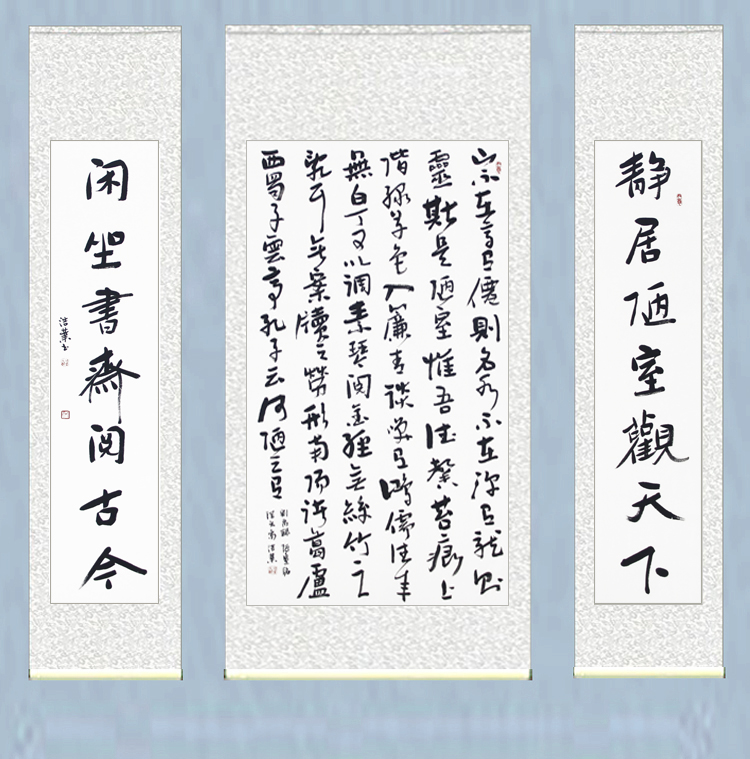 静居陋室觀天下
山不在高有僊則名水不在深有龍則
靈斯是陋室惟吾德馨苔痕上
階緑草色入簾青談笑有鴻儒往来
無白丁可以调素琴阅金經无絲竹之
亂耳无案牘之勞形南陽諸葛廬
西蜀子雲亭孔子云何陋之有
劉禹錫陋室銘
浩業
闲坐書齋阅古今
浩業书